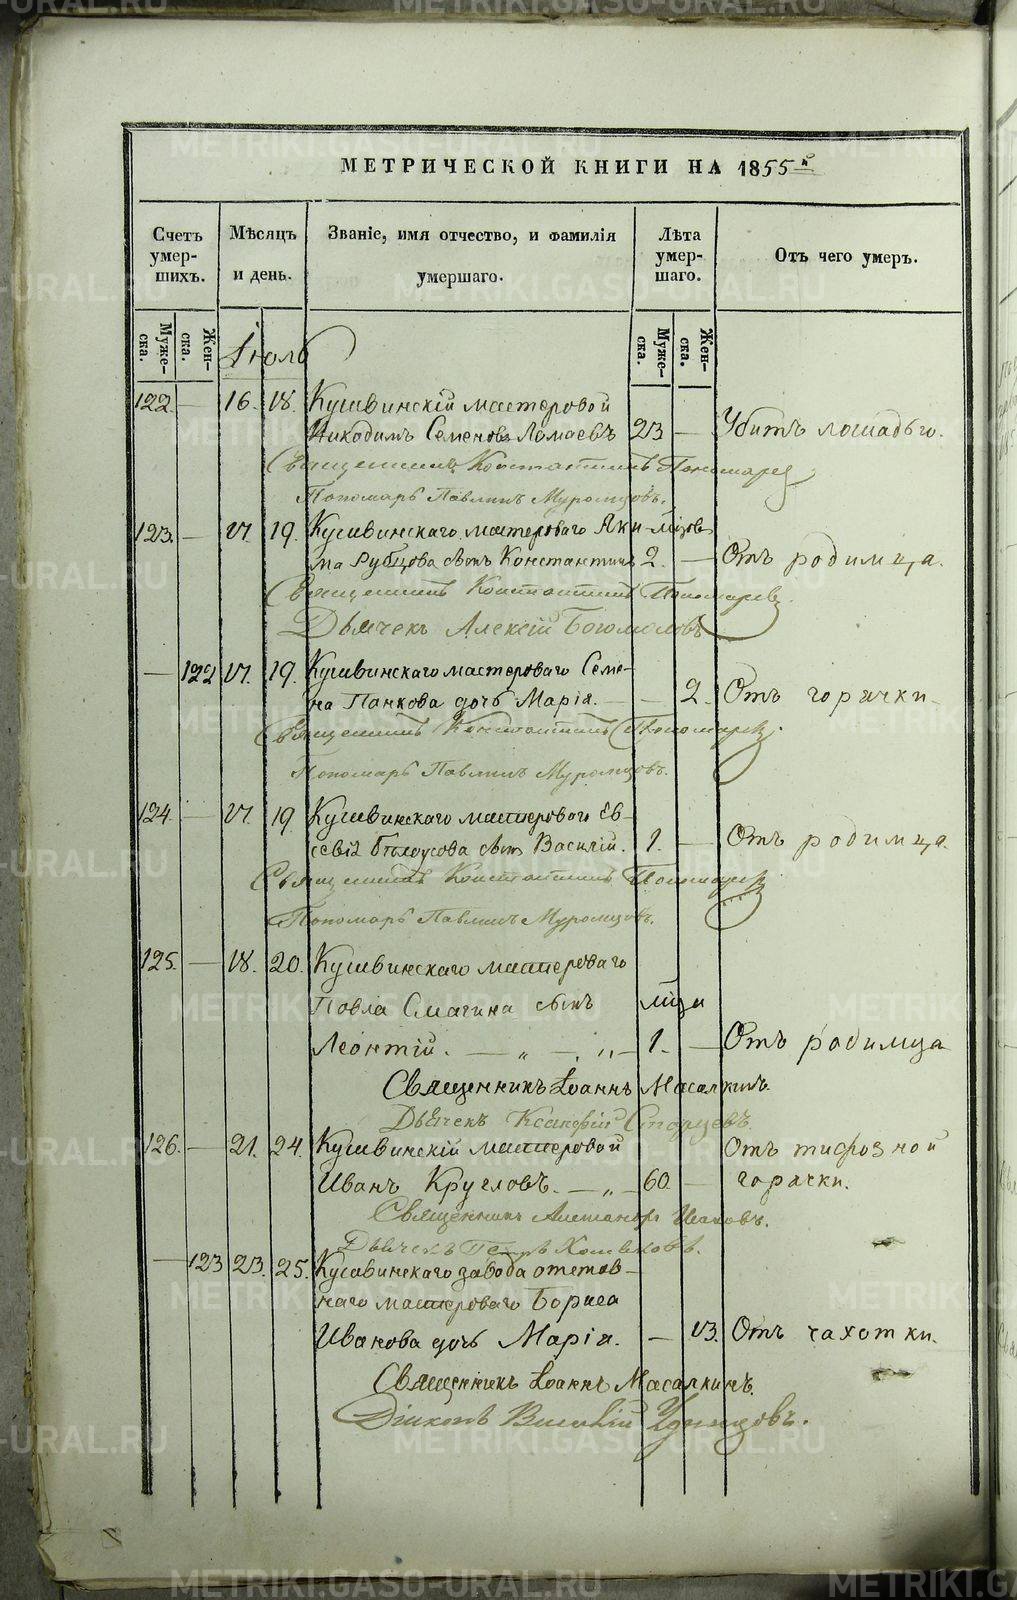 МЕТРИЧЕСКОЙ КНИГИ НА 1855й
Счетъ умер-шихъ.
Мѣсяцъ и день.
Званіе, имя отчество, и фамилія умершаго.
Лѣта умер-шаго.
Отъ чего умеръ.
Муже-ска.
Жен-ска.
Муже-ска.
Жен-ска.
Іюль
122. — 16. 18. Кушвинскій мастеровой
Никодимъ Семеновъ Ломаевъ 23 — Убитъ лошадью.
Священникъ Константинъ Пономаревъ
Пономарь Павлинъ Муромцовъ.
123. — 17. 19. Кушвинскаго мастероваго Яки- мѣсяцов
ма Рубцова сынъ Константинъ 2. — Отъ родимца.
Священникъ Константинъ Пономаревъ.
Дьячекъ Алексій Богомоловъ
— 122 17. 19. Кушвинскаго мастероваго Семе-
на Панкова дочь Марія. — — 2. Отъ горячки.
Священникъ Константинъ Пономаревъ.
Пономарь Павлинъ Муромцовъ.
124. — 17. 19. Кушвинскаго мастероваго Ев-
севія Бѣлоусова сынъ Василій. 1. — Отъ родимца.
Священникъ Константинъ Пономаревъ
Пономарь Павлинъ Муромцовъ.
125. — 18. 20. Кушвинскаго мастероваго
Павла Смагина сынъ мѣца
Леонтій. — „ — „ — 1. — Отъ родимца
Священникъ Іоаннъ Масалкинъ.
Дьячекъ Ксенофій Старцевъ.
126. — 21. 24. Кушвинскій мастеровой Отъ тифозной
Иванъ Кругловъ. — „ — 60. — горячки.
Священникъ Александръ
Дьячекъ Петръ Хомяковъ.
— 123 23. 25. Кушвинскаго завода отстав-
наго мастероваго Бориса
Иванова дочь Марія. — 13. Отъ чахотки.
Священникъ Іоаннъ Масалкинъ.
Діаконъ Василій Удинцовъ.
METRIKI.GASO-URAL.RU